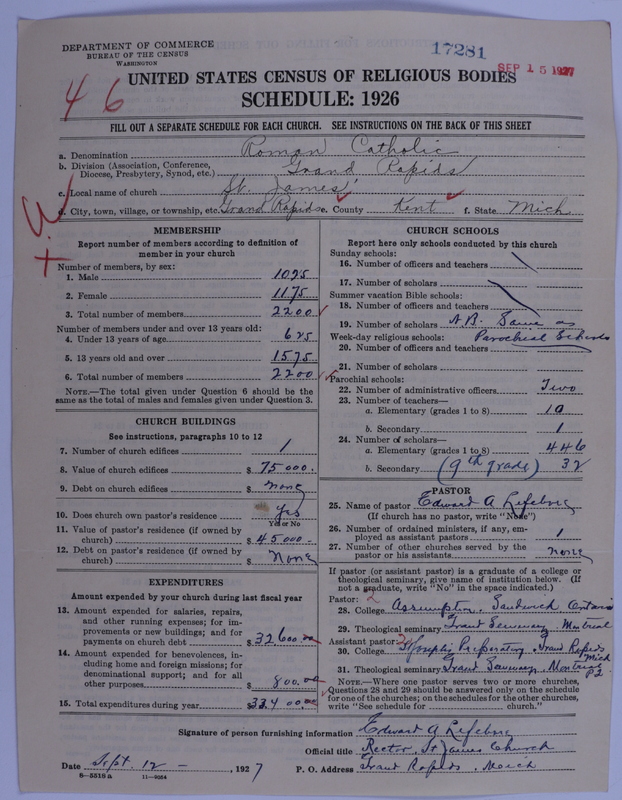 DEPARTMENT OF COMMERCE
BUREAU OF THE CENSUS
WASHINGTON
17281
SEP 15 1927
46
UNITED STATES CENSUS OF RELIGIOUS BODIES
SCHEDULE: 1926
FILL OUT A SEPARATE SCHEDULE FOR EACH CHURCH. SEE INSTRUCTIONS ON THE BACK OF THIS SHEET
a. Denomination Roman Catholic
b. Division (Association, Conference, Diocese, Presbytery, Synod, etc.) Grand Rapids
c. Local name of church St. James'
d. City, town, village, or township, etc. Grand Rapids e. County Kent f. State Mich
MEMBERSHIP
Report number of members according to definition of member in your church
Number of members, by sex:
1. Male 1025
2. Female 1175
3. Total number of members 2200
Number of members under and over 13 years old:
4. Under 13 years of age 625
5. 13 years old and over 1575
6. Total number of members 2200
NOTE.—The total given under Question 6 should be the same as the total of males and females given under Question 3.
CHURCH BUILDINGS
See instructions, paragraphs 10 to 12
7. Number of church edifices 1
8. Value of church edifices $ 75000.
9. Debt on church edifices $ none
10. Does church own pastor's residence Yes
Yes or No
11. Value of pastor's residence (if owned by church) $ 45000-
12. Debt on pastor's residence (if owned by church) $ None
EXPENDITURES
Amount expended by your church during last fiscal year
13. Amount expended for salaries, repairs, and other running expenses; for improvements or new buildings; and for payments on church debt $ 32,600.00
14. Amount expended for benevolences, including home and foreign missions; for denominational support; and for all other purposes $ 800.00
15. Total expenditures during year $ 33400.00
CHURCH SCHOOLS
Report here only schools conducted by this church
Sunday schools:
16. Number of officers and teachers
17. Number of scholars
Summer vacation Bible schools:
18. Number of officers and teachers
19. Number of scholars AB. Same as
Week-day religious schools: Parochial Schools
20. Number of officers and teachers
21. Number of scholars
Parochial schools:
22. Number of administrative officers Two
23. Number of teachers—
a. Elementary (grades 1 to 8) 10
b. Secondary 1
24. Number of scholars—
a. Elementary (grades 1 to 8) 446
b. Secondary (9th grade) 32
PASTOR
25. Name of pastor Edward A Lefebvre
(If church has no pastor, write "None")
26. Number of ordained ministers, if any, employed as assistant pastors 1
27. Number of other churches served by the pastor or his assistants none
If pastor (or assistant pastor) is a graduate of a college or theological seminary, give name of institution below. (If not a graduate, write "No" in the space indicated.)
Pastor: 2
28. College Assumption. Sandwich Ontario
29. Theological seminary Grand Seminary. Montreal
Assistant pastor:
30. College St Josephs Preparatory. Grand Rapids Mich
31. Theological seminary Grand Seminary. Montreal P2
NOTE.—Where one pastor serves two or more churches, Questions 28 and 29 should be answered only on the schedule for one of the churches; on the schedules for the other churches, write "See schedule for church."
Signature of person furnishing information Edward A Lefebvre
Official title Rector, St James Church
Date Sept. 12 - , 1927 P. O. Address Grand Rapids. Mich
8-5515 a 11-9264